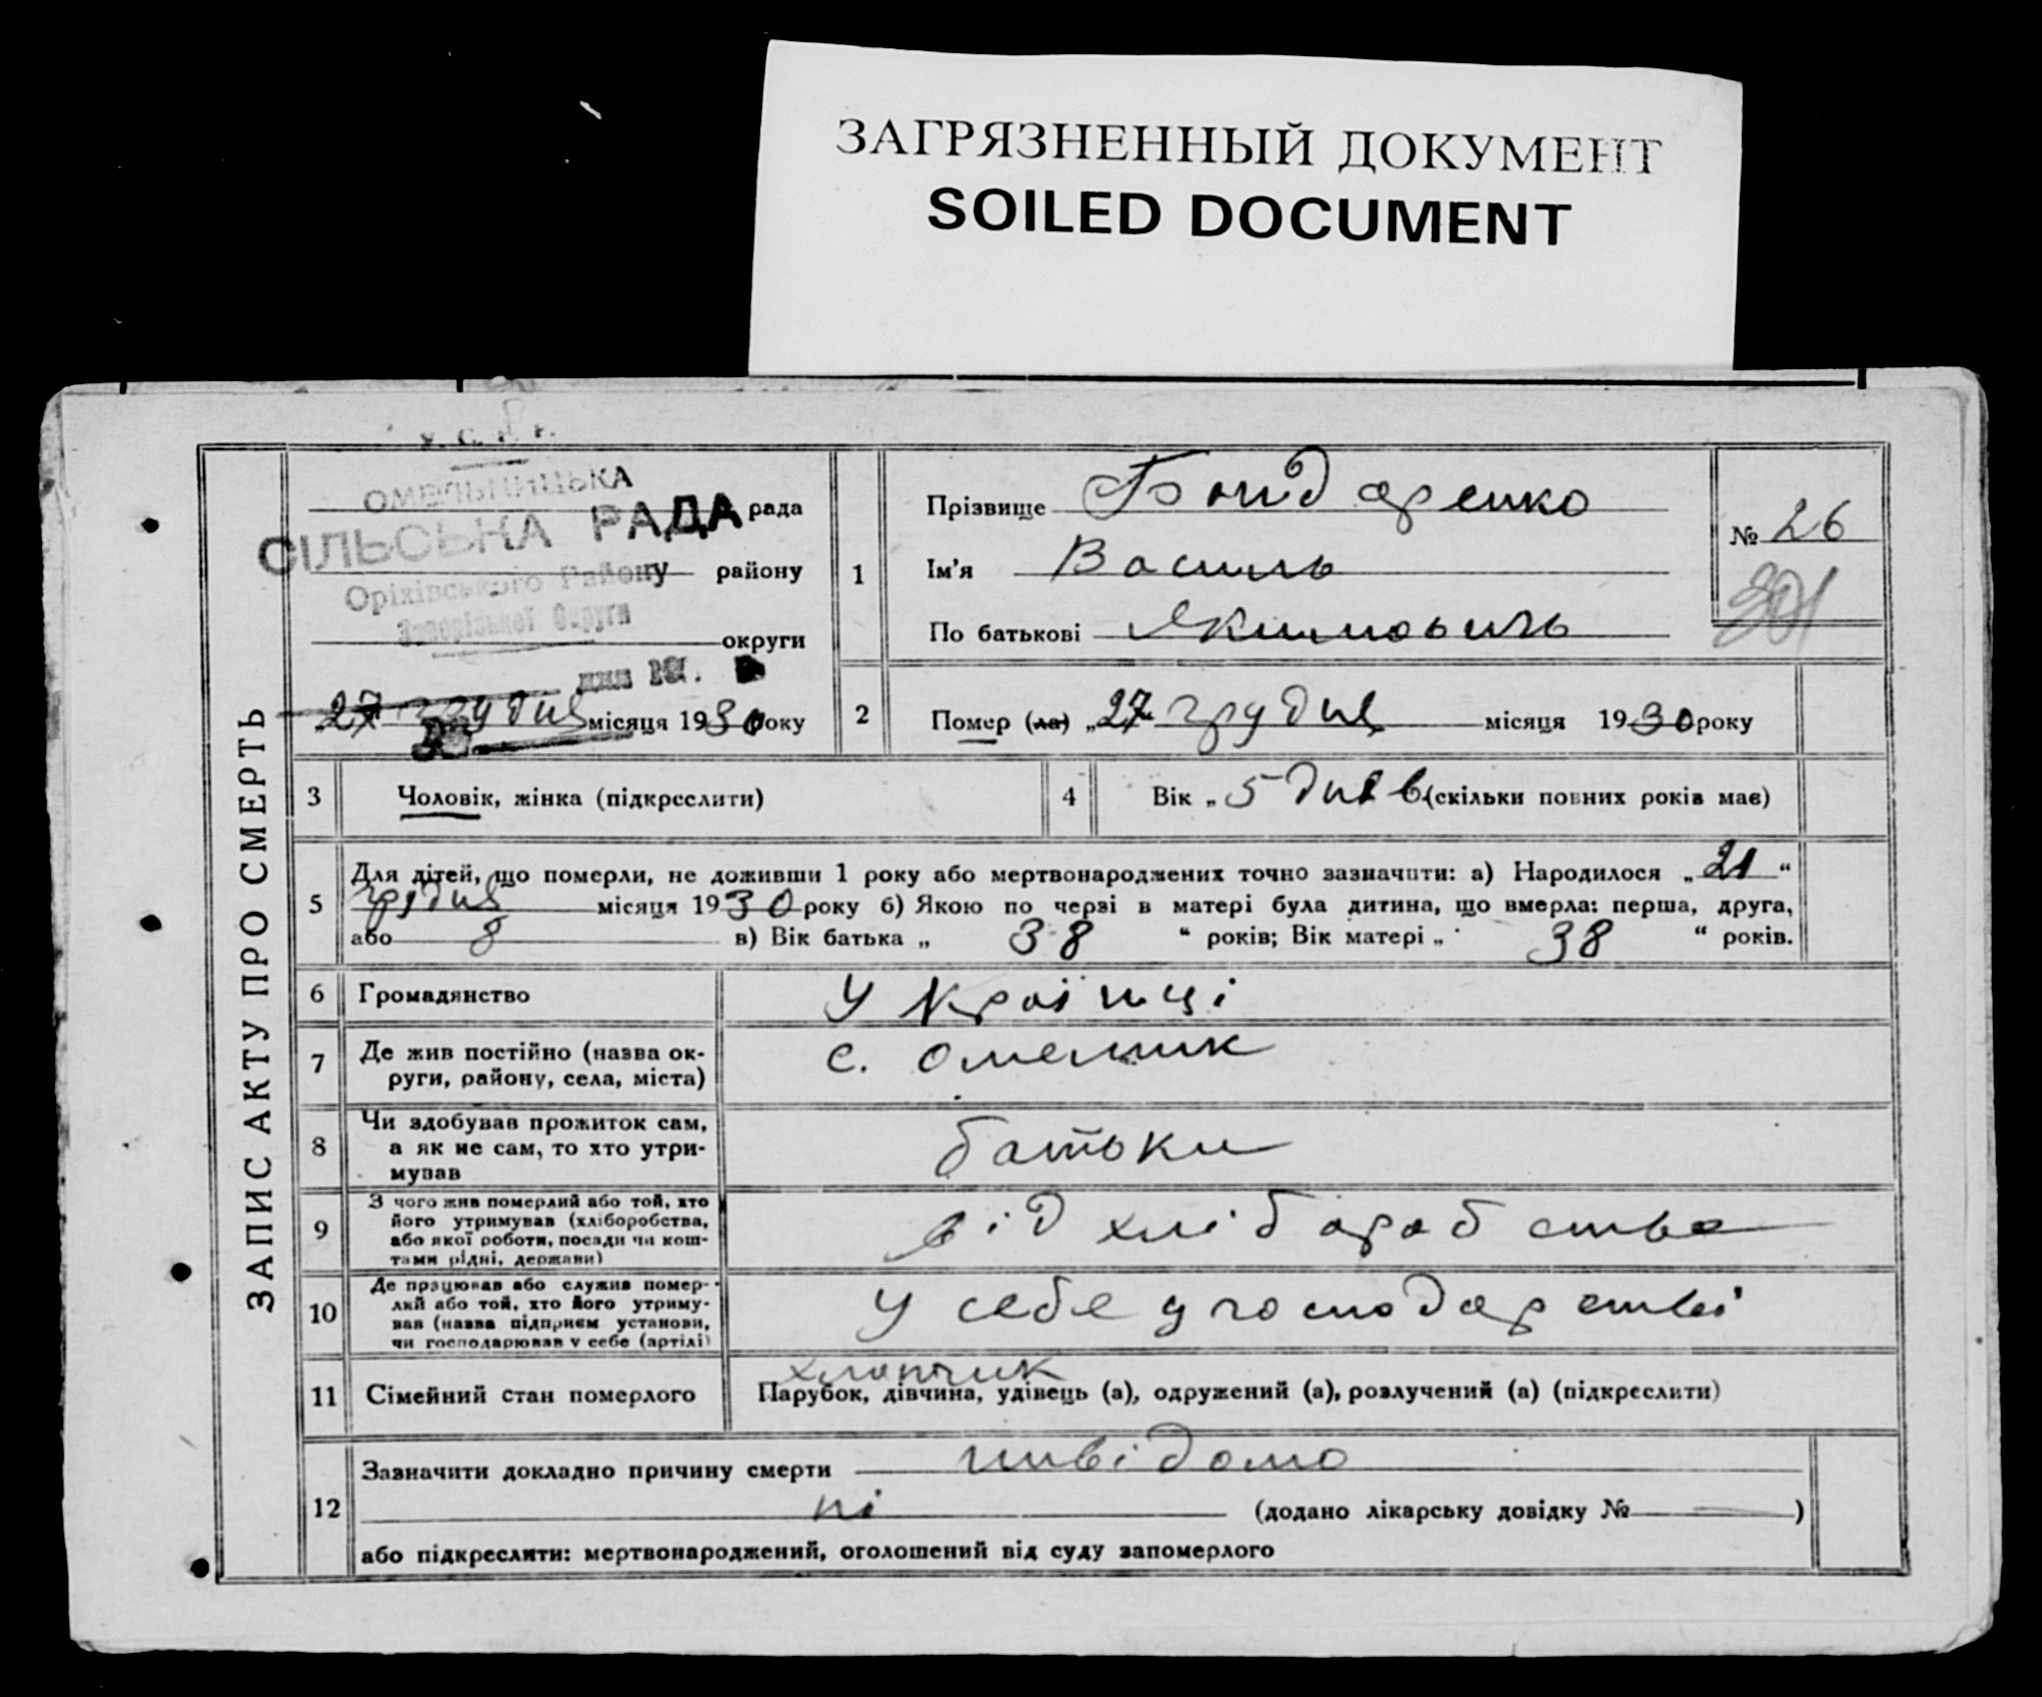 ЗАГРЯЗНЕННЫЙ ДОКУМЕНТ
SOILED DOCUMENT
У. С. Р. Р.
ОМЕЛЬНИЦЬКА
СІЛЬСЬКА РАДА рада
Оріхівського Району району
Запорізької Округи
округи
27 грудня місяця 1930 року
ЗАПИС АКТУ ПРО СМЕРТЬ
1
Прізвище Бондаренко
Ім'я Василь
По батькові Якимовичь
№ 26
2
Помер (ла) „27 грудня місяця 1930 року
3 Чоловік, жінка (підкреслити)
4 Вік „ 5 днів (скільки повних років має)
5 Для дітей, що померли, не доживши 1 року або мертвонароджених точно зазначити: а) Народилося „21“
грудня місяця 1930 року б) Якою по черзі в матері була дитина, що вмерла: перша, друга,
або 8 в) Вік батька „ 38 “ років; Вік матері „ 38 “ років.
6 Громадянство Українці
7 Де жив постійно (назва ок-
руги, району, села, міста)
с. Омельник
8 Чи здобував прожиток сам,
а як не сам, то хто утри-
мував
батьки
9 З чого жив померлий або той, хто
його утримував (хліборобства,
або якої роботи, посади чи кош-
тами рідні, держави)
від хліборобства
10 Де працював або служив помер-
лий або той, хто його утриму-
вав (назва підприєм установи,
чи господарював у себе (артілі)
У себе у господарстві
11 Сімейний стан померлого
хлопчик
Парубок, дівчина, удівець (а), одружений (а), розлучений (а) (підкреслити)
12 Зазначити докладно причину смерти невідомо
ні (додано лікарську довідку № — )
або підкреслити: мертвонароджений, оголошений від суду запомерлого